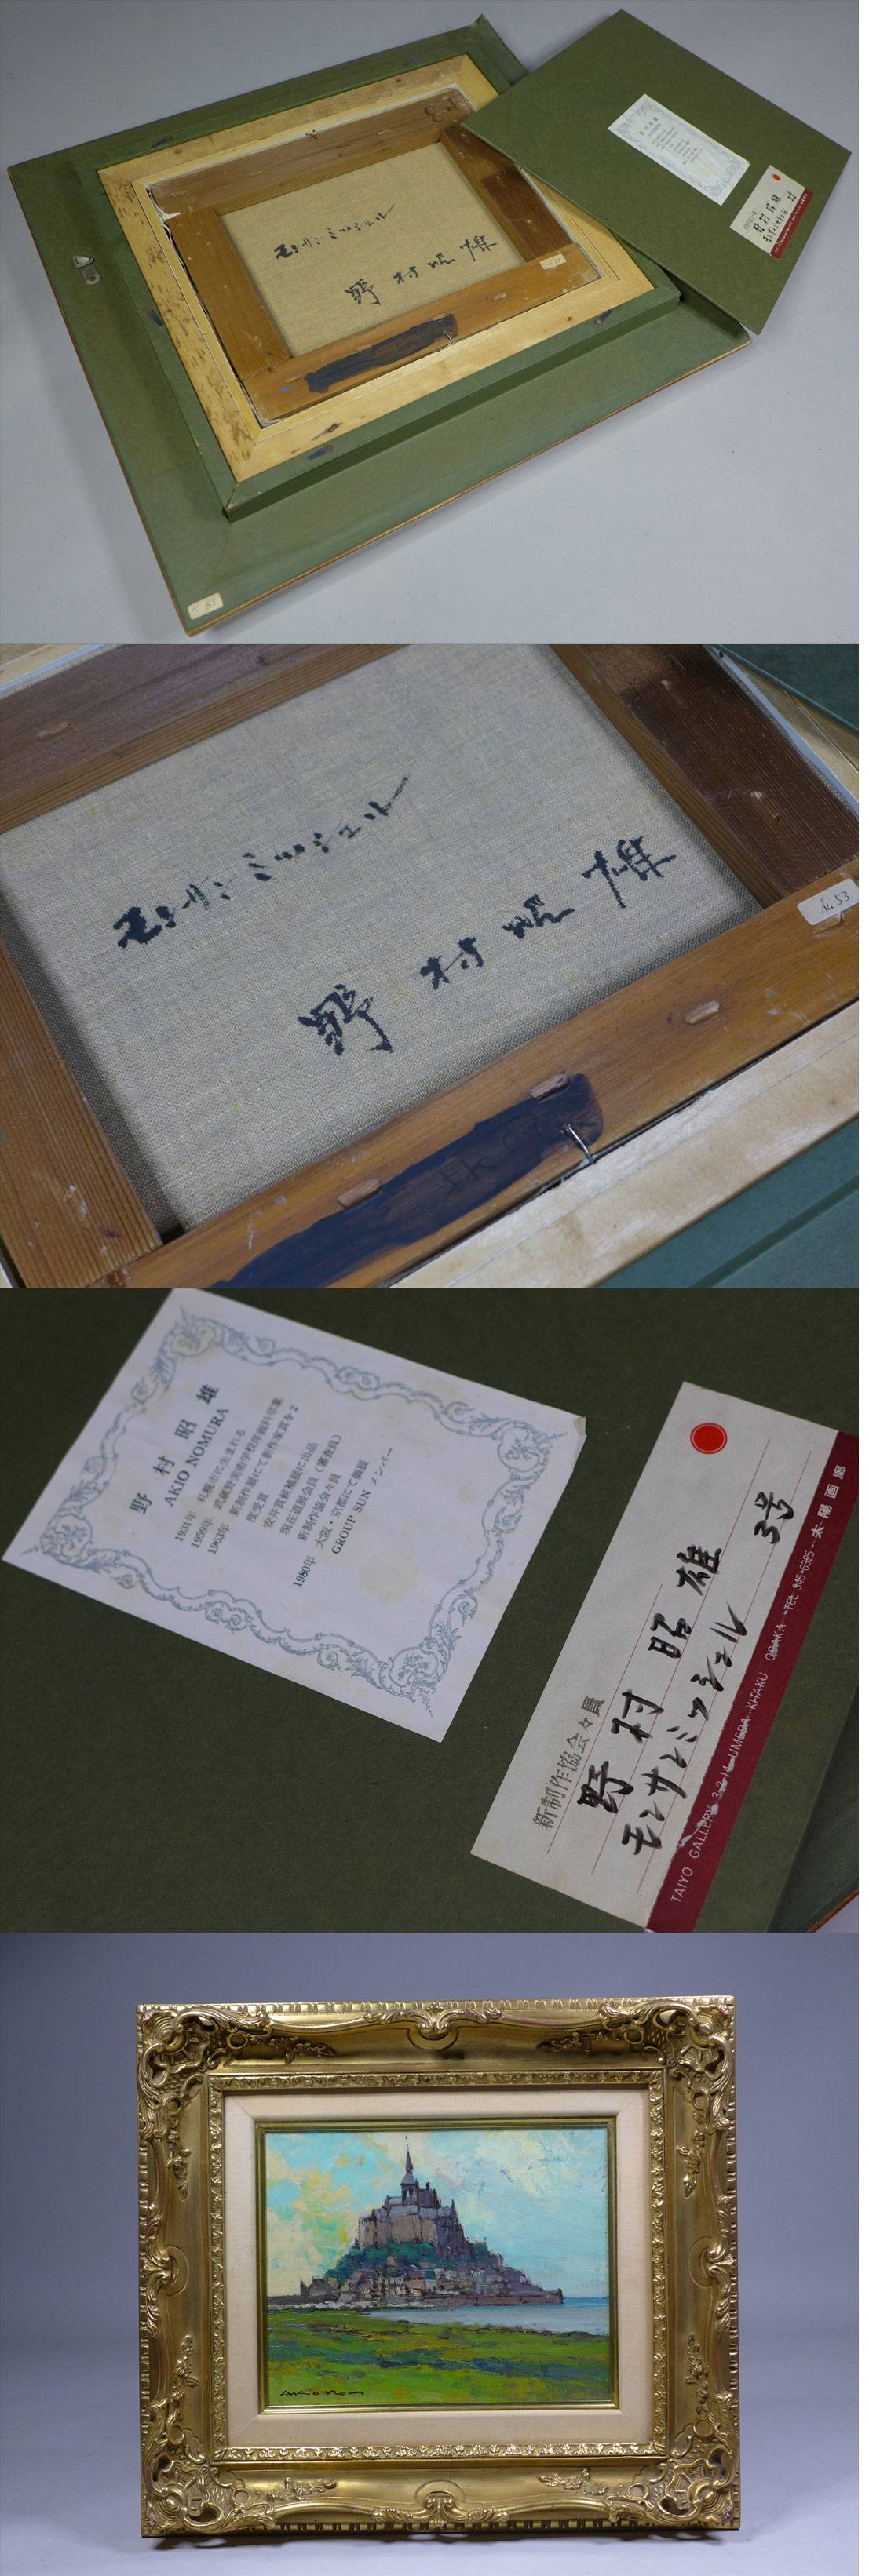 F3
モンサンミッシェル
野村昭雄
モンサンミッシェル
野村昭雄
53
野村昭雄
AKIO NOMURA
1931年 札幌市に生まれる
1959年 武蔵野美術学校洋画科卒業
1963年 新制作展にて新作家賞を2
度受賞
安井賞候補展に出品
現在道展会員(審査員)
新制作協会々員
1980年 大阪・京都にて個展
GROUP SUN メンバー
新制作協会々員
野村昭雄 3号
モンサンミッシェル
TAIYO GALLERY 3-2-14 UMEDA KITAKU OSAKA TEL 345-6325 太陽画廊